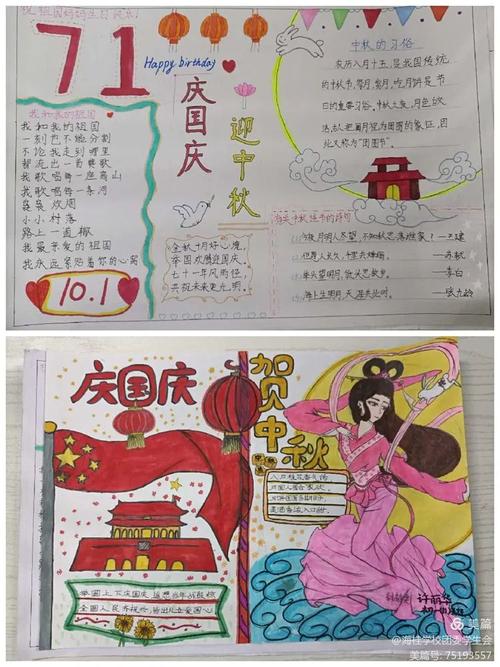 祝祖国妈妈生日快乐!
71
Happy birthday
庆国庆
迎中秋
我和我的祖国
我和我的祖国
一刻也不能分割
不论我走到哪里
都流出一首赞歌
我歌唱每一座高山
我歌唱每一条河
袅袅炊烟
小小村落
路上一道辙
我最亲爱的祖国
我永远紧贴着你的心窝
10.1
金秋十月好心境
举国欢腾迎国庆
七十一年风雨径
共祝未来更光明
中秋的习俗
农历八月十五,是我国传统
的中秋节,赏月,祭月,吃月饼是节
日的重要习俗,中秋之夜,月色皎
洁,古人把圆月视为团圆的象征,因
此又称为“团圆节”
有关中秋佳节的诗句
今夜月明人尽望,不知秋思落谁家?——王建
但愿人长久,千里共婵娟。——苏轼
举头望明月,低头思故乡。——李白
海上生明月,天涯共此时。——张九龄
庆国庆
贺中秋
举国上下庆国庆
全国人民齐祝
许丽华
初一
美篇
@海桂学校团委学生会
美篇号: 75193557